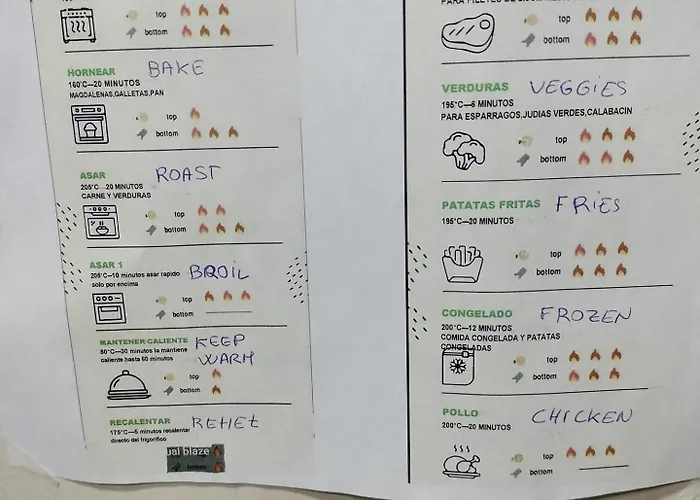 top
bottom
HORNEAR BAKE
160°C—20 MINUTOS
MAGDALENAS,GALLETAS,PAN
top
bottom
ASAR ROAST
205°C—20 MINUTOS
CARNE Y VERDURAS
top
bottom
ASAR 1 BROIL
205°C—10 minutos asar rapido
solo por encima
top
bottom
MANTENER CALIENTE KEEP WARM
80°C—30 minutos la mantiene
caliente hasta 60 minutos
top
bottom
RECALENTAR REHEt
175°C—5 minutos recalentar
directo del frigorifico
ual blaze
bottom
top
bottom
VERDURAS VEGGiES
195°C—6 MINUTOS
PARA ESPARRAGOS,JUDIAS VERDES,CALABACIN
top
bottom
PATATAS FRITAS FRiES
195°C—20 MINUTOS
top
bottom
CONGELADO FROZEN
200°C—12 MINUTOS
COMIDA CONGELADA Y PATATAS
CONGELADAS
top
bottom
POLLO CHICKEN
200°C—20 MINUTOS
top
bottom